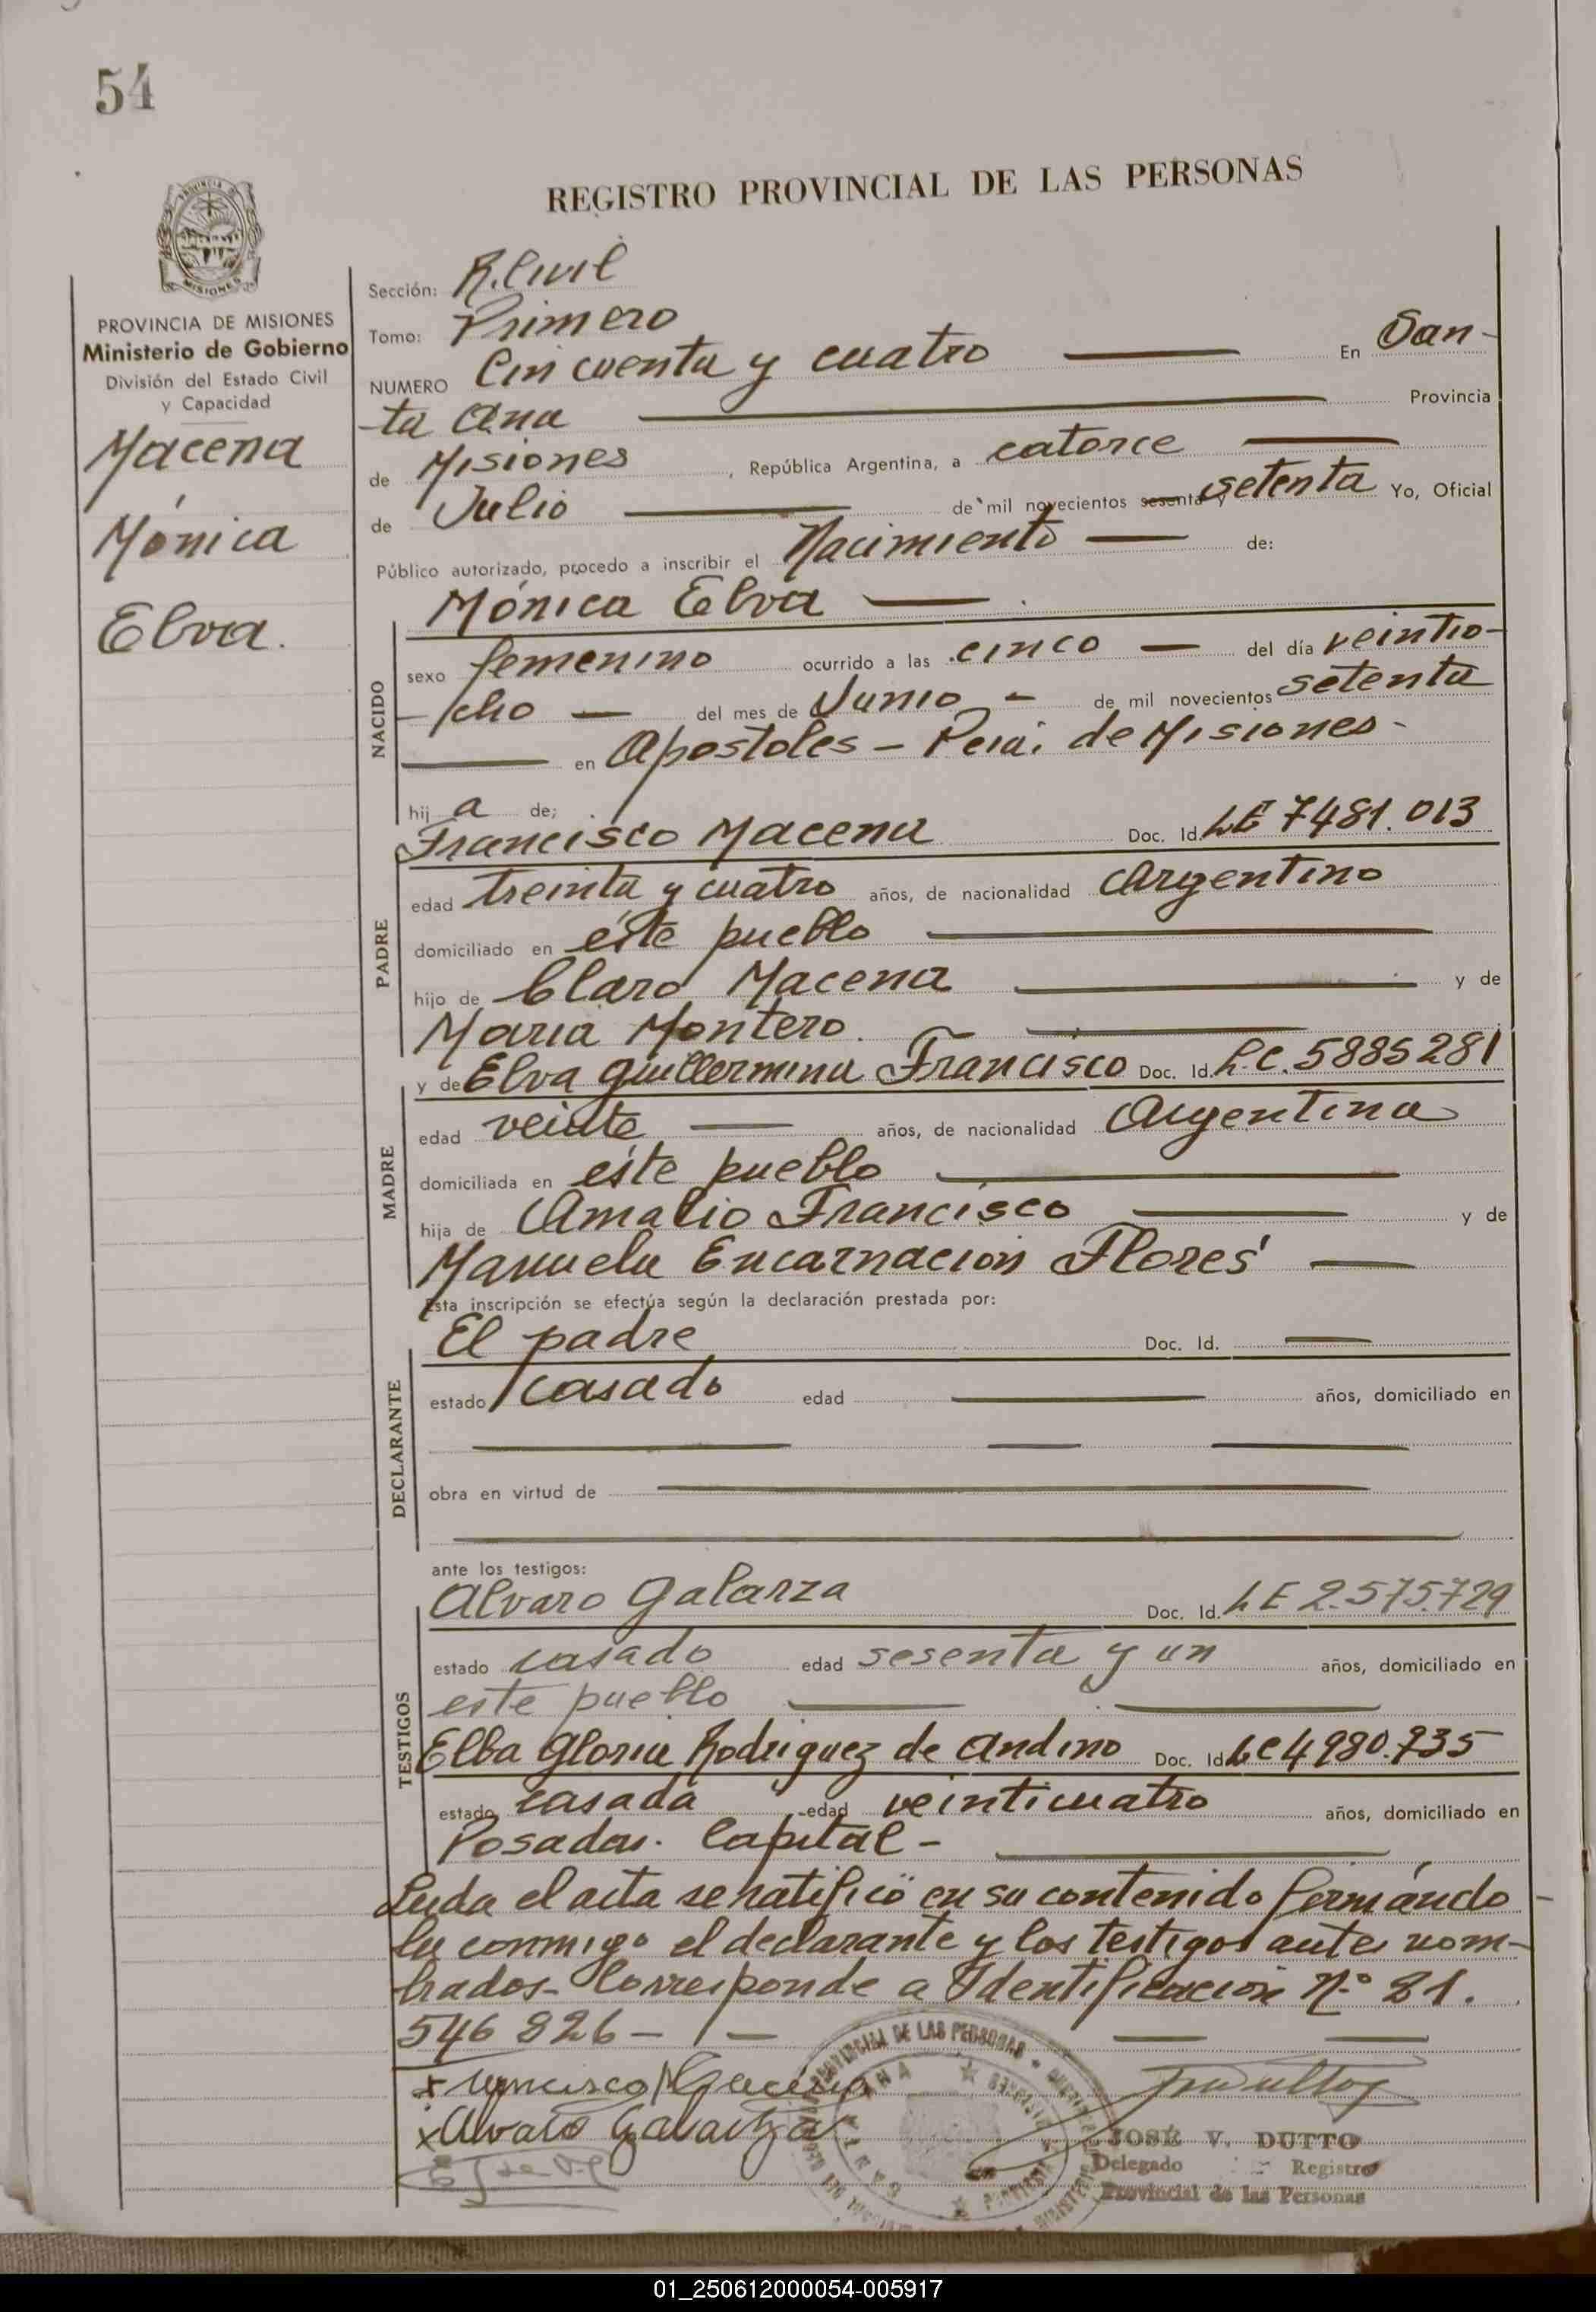 54
REGISTRO PROVINCIAL DE LAS PERSONAS
MISIONES
PROVINCIA DE MISIONES
Ministerio de Gobierno
División del Estado Civil
y Capacidad
Macena
Mónica
Elva.
Sección: R. Civil
Tomo: Primero
NUMERO Cincuenta y cuatro — En San-
ta Ana — Provincia
de Misiones, República Argentina, a catorce —
de Julio — de mil novecientos sesenta y setenta Yo, Oficial
Público autorizado, procedo a inscribir el Nacimiento — de:
Mónica Elva —
NACIDO
sexo femenino ocurrido a las cinco — del día veintio-
cho — del mes de Junio — de mil novecientos setenta
— en Apostoles - Pcia. de Misiones -
hij a de;
Francisco Macena Doc. Id. LE 7481.013
PADRE
edad treinta y cuatro años, de nacionalidad Argentino
domiciliado en éste pueblo —
hijo de Claro Macena — y de
Maria Montero. —
y de Elva Guillermina Francisco Doc. Id. L.C. 5885281
MADRE
edad veinte — años, de nacionalidad Argentina
domiciliada en éste pueblo —
hija de Amalio Francisco — y de
Manuela Encarnación Flores —
Esta inscripción se efectúa según la declaración prestada por:
El padre Doc. Id. —
DECLARANTE
estado casado edad — años, domiciliado en
— — —
obra en virtud de —
—
ante los testigos:
Alvaro Galarza Doc. Id. LE 2.575.729
TESTIGOS
estado casado edad sesenta y un años, domiciliado en
este pueblo — —
Elba Gloria Rodriguez de Andino Doc. Id. LC 4980.735
estado casada edad veinticuatro años, domiciliado en
Posadas. Capital - —
Leida el acta se ratificó en su contenido firmándo
la conmigo el declarante y los testigos antes nom-
brados- Corresponde a Identificación N° 21.
546 826 - / —
x Francisco Macena
x Alvaro Galarza
JOSÉ V. DUTTO
Delegado Registro
Provincial de las Personas
PROVINCIAL DE LAS PERSONAS
SANTA ANA
01_250612000054-005917